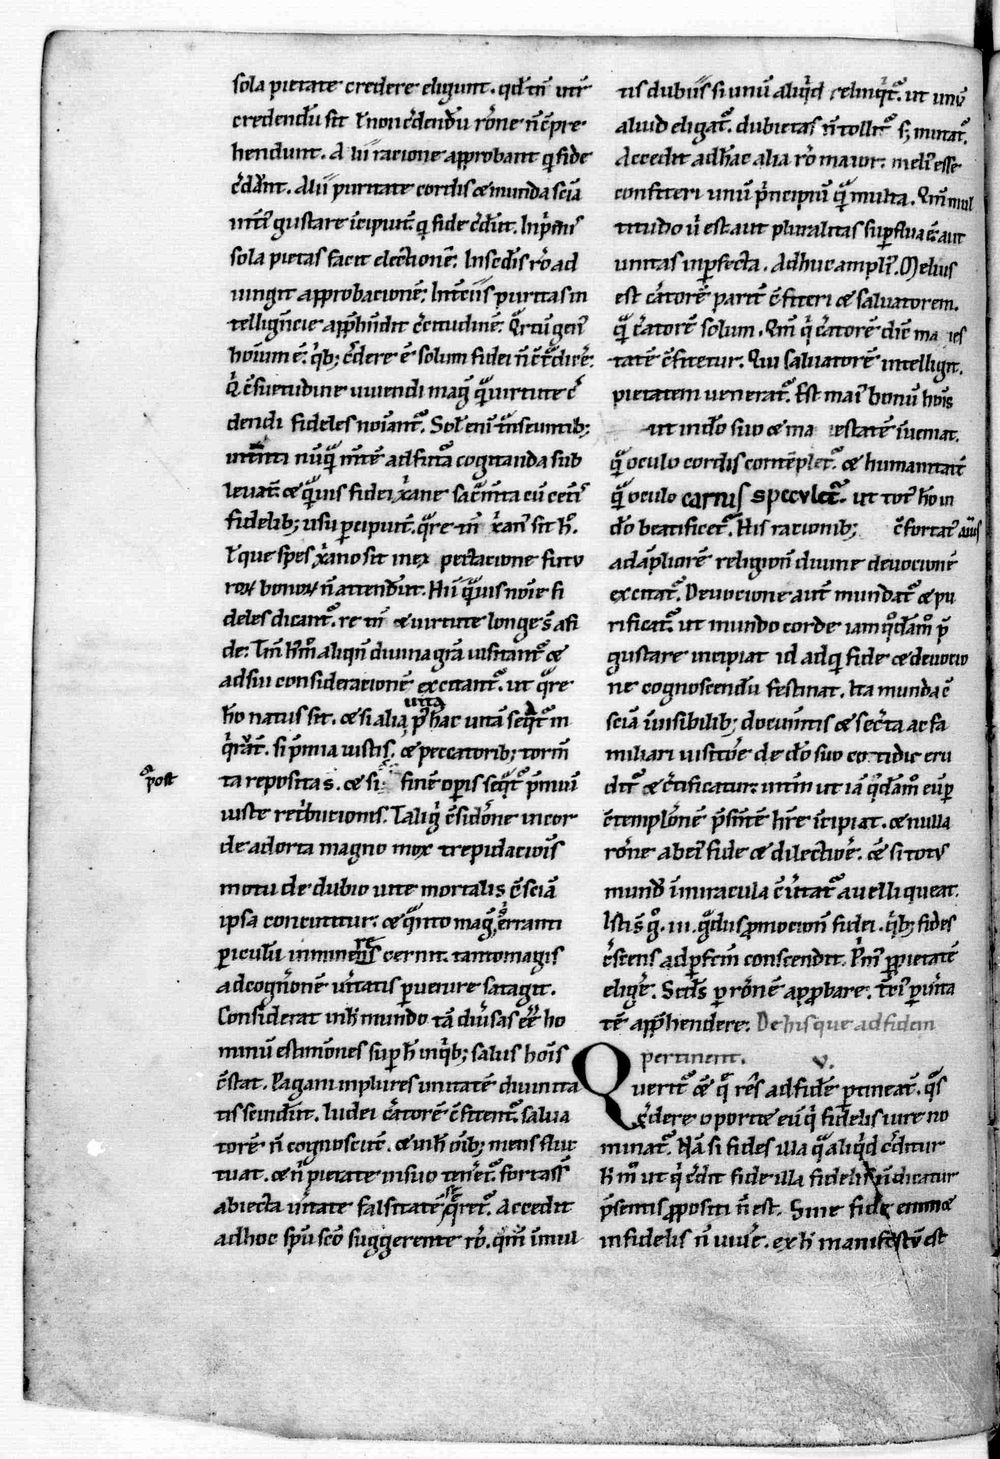 sola pietate credere eligunt. qd̄ tn̄ utr̄
credendū sit ł non c̄dendū rōne n̄ cp̄re
hendunt. Alii racione approbant q̄ fide
c̄dūt. Alii puritate cordis & munda sciā
int̄i gustare īcipiunt q̄ fide c̄dūt. In p̄mis
sola pietas facit electionē. In sed̄is rō ad
iungit approbacionē. In t̄ciis puritas in
telligēcie app̄hndit c̄titudinē. Q̄rtū gen̄
hoīum ē. q̄b; c̄dere ē solum fidei n̄ c̄t̄dic̄e.
q̄ c̄suetudine uiuendi maḡ q̄ uirtute c̄
dendi fideles noīant̄. Sol̄ enī t̄nseuntib;
intenti nūq̄ m̄tē ad fut̄a cogitanda sub
leuant & q̄uis fidei xp̄ane sac̄mta cū cet̄i
fidelib; usu p̄cipiunt. q̄re tn̄ xp̄an̄ sit h̄o.
ł que spes xp̄ano sit in ex pectacione futu
roꝝ bonoꝝ n̄ attendūt. Hii q̄uis noīe fi
deles dicant̄. re tn̄ & uirtute longe s̄ a fi
de. Tn̄ h̄m̄ aliqn̄ diuina gr̄a uisitant̄ &
ad sui consideracionē excitant̄. ut q̄re
uita
h̄o natus sit. & si alia p̄ hac uitā seq̄t̄ in
q̄rāt. si p̄mia iustis. & peccatorib; torm̄
post
ta reposita s. & si finē opis seq̄t̄ p̄miū
iuste ret̄bucionis. Taliq̄ c̄sidōne in cor
de adorta magno mox trepidaciōis
motu de dubio uite mortalis c̄sciā
ipsa concutitur. & q̄nto maḡ erranti
re
periculū inminens cernit. tanto magis
ad cognōnē uītatis p̄uenire satagit.
Considerat in h̄ mundo tā diu̇sas ēē ho
minū estimōnes sup̄ h̄ in q̄b; salus hoīs
c̄stat. Pagani in plures unitatē diuinita
tis scindūt. Iudei c̄atorē c̄fitent̄ salua
torē n̄ cognoscūt. & in h̄ oīb; mens fluc
tuat. & n̄ pietate in suo tenēt̄. fortass̄
abiecta ūitate falsitatē q̄rit̄. Accedit
ad hoc sp̄u sc̄o suggerente rō. qm̄ ī mul
tis dubiis si unū aliq̄d relinq̄t̄. ut unū
aliud eligat̄. dubietas n̄ tollit̄ s; mutat̄.
Accedit ad h̄ac alia rō maior. meli̇ esse
confiteri unū p̄ncipiū q̄ multa. Qm̄ mul
titudo ū est aut pluralitas sup̄flua ē. aut
unitas inp̄fecta. Adhuc ampli̇. Melius
est c̄atorē parit̄ c̄fiteri & saluatorem.
q̄ c̄atorē solum. Qm̄ q̄ c̄atorē dīcē ma ies
tatē c̄fitetur. Qui saluatorē intelligit.
pietatem uenerat̄. Est mai̇ bonū hoīs
ut in dō suo & ma iestatē īueniat.
q̄ oculo cordis contēplet̄. & humanitatē
q̄ oculo carnis speculet̄. ut tot̄ h̄o in
dō beatificet̄. His racionib; c̄fortat̄ aīus
ad āpliorē religionē diuine deuocionē
excitat̄. Deuocione aut̄ mundat̄ & pu
rificat̄. ut mundo corde iam q̄dam̄ p̄
gustare incipiat id ad q̄ fide & deuocio
ne cognoscendū festinat. Ita munda c̄
sciā īuisibilib; documtis & sec̄ta ac fa
miliari uisitōe de dō suo cottidie eru
dit̄ & c̄tificatur. intm̄ ut iā q̄dam̄ eū p̄
c̄templōnē p̄sentē hr̄e īcipiat. & nulla
rōne ab ei̇ fide & dilectiōe. & si tot̄
mund̄ ī miracula c̄ūtat̄ auelli queat.
Isti s̄ g̊. iii. gdus p̄mocion̄ fidei. q̄b; fides
c̄scens ad p̄fcm̄ conscendit. Pm̄ p̄ pietatē
elig̅e. Scd̄s p̄ rōnē app̄bare. Tci̇ p̄ uīta
tē app̄hendere. De his que ad fidem
pertinent. v.
Querit̄ & q̄ res̄ ad fidē p̄tineat. q̄s
c̄dere oportet eū q̄ fidelis iure no
minat̄. Nā si fides illa q̄ aliq̄d c̄ditur
h̄ m̄ ut q̄ c̄dit fide illa fidelis n̄ dicatur
p̄sentis p̄positi n̄ est. Sine fide enim &
infidelis n̄ uiuit. ex h̄ manifestū est